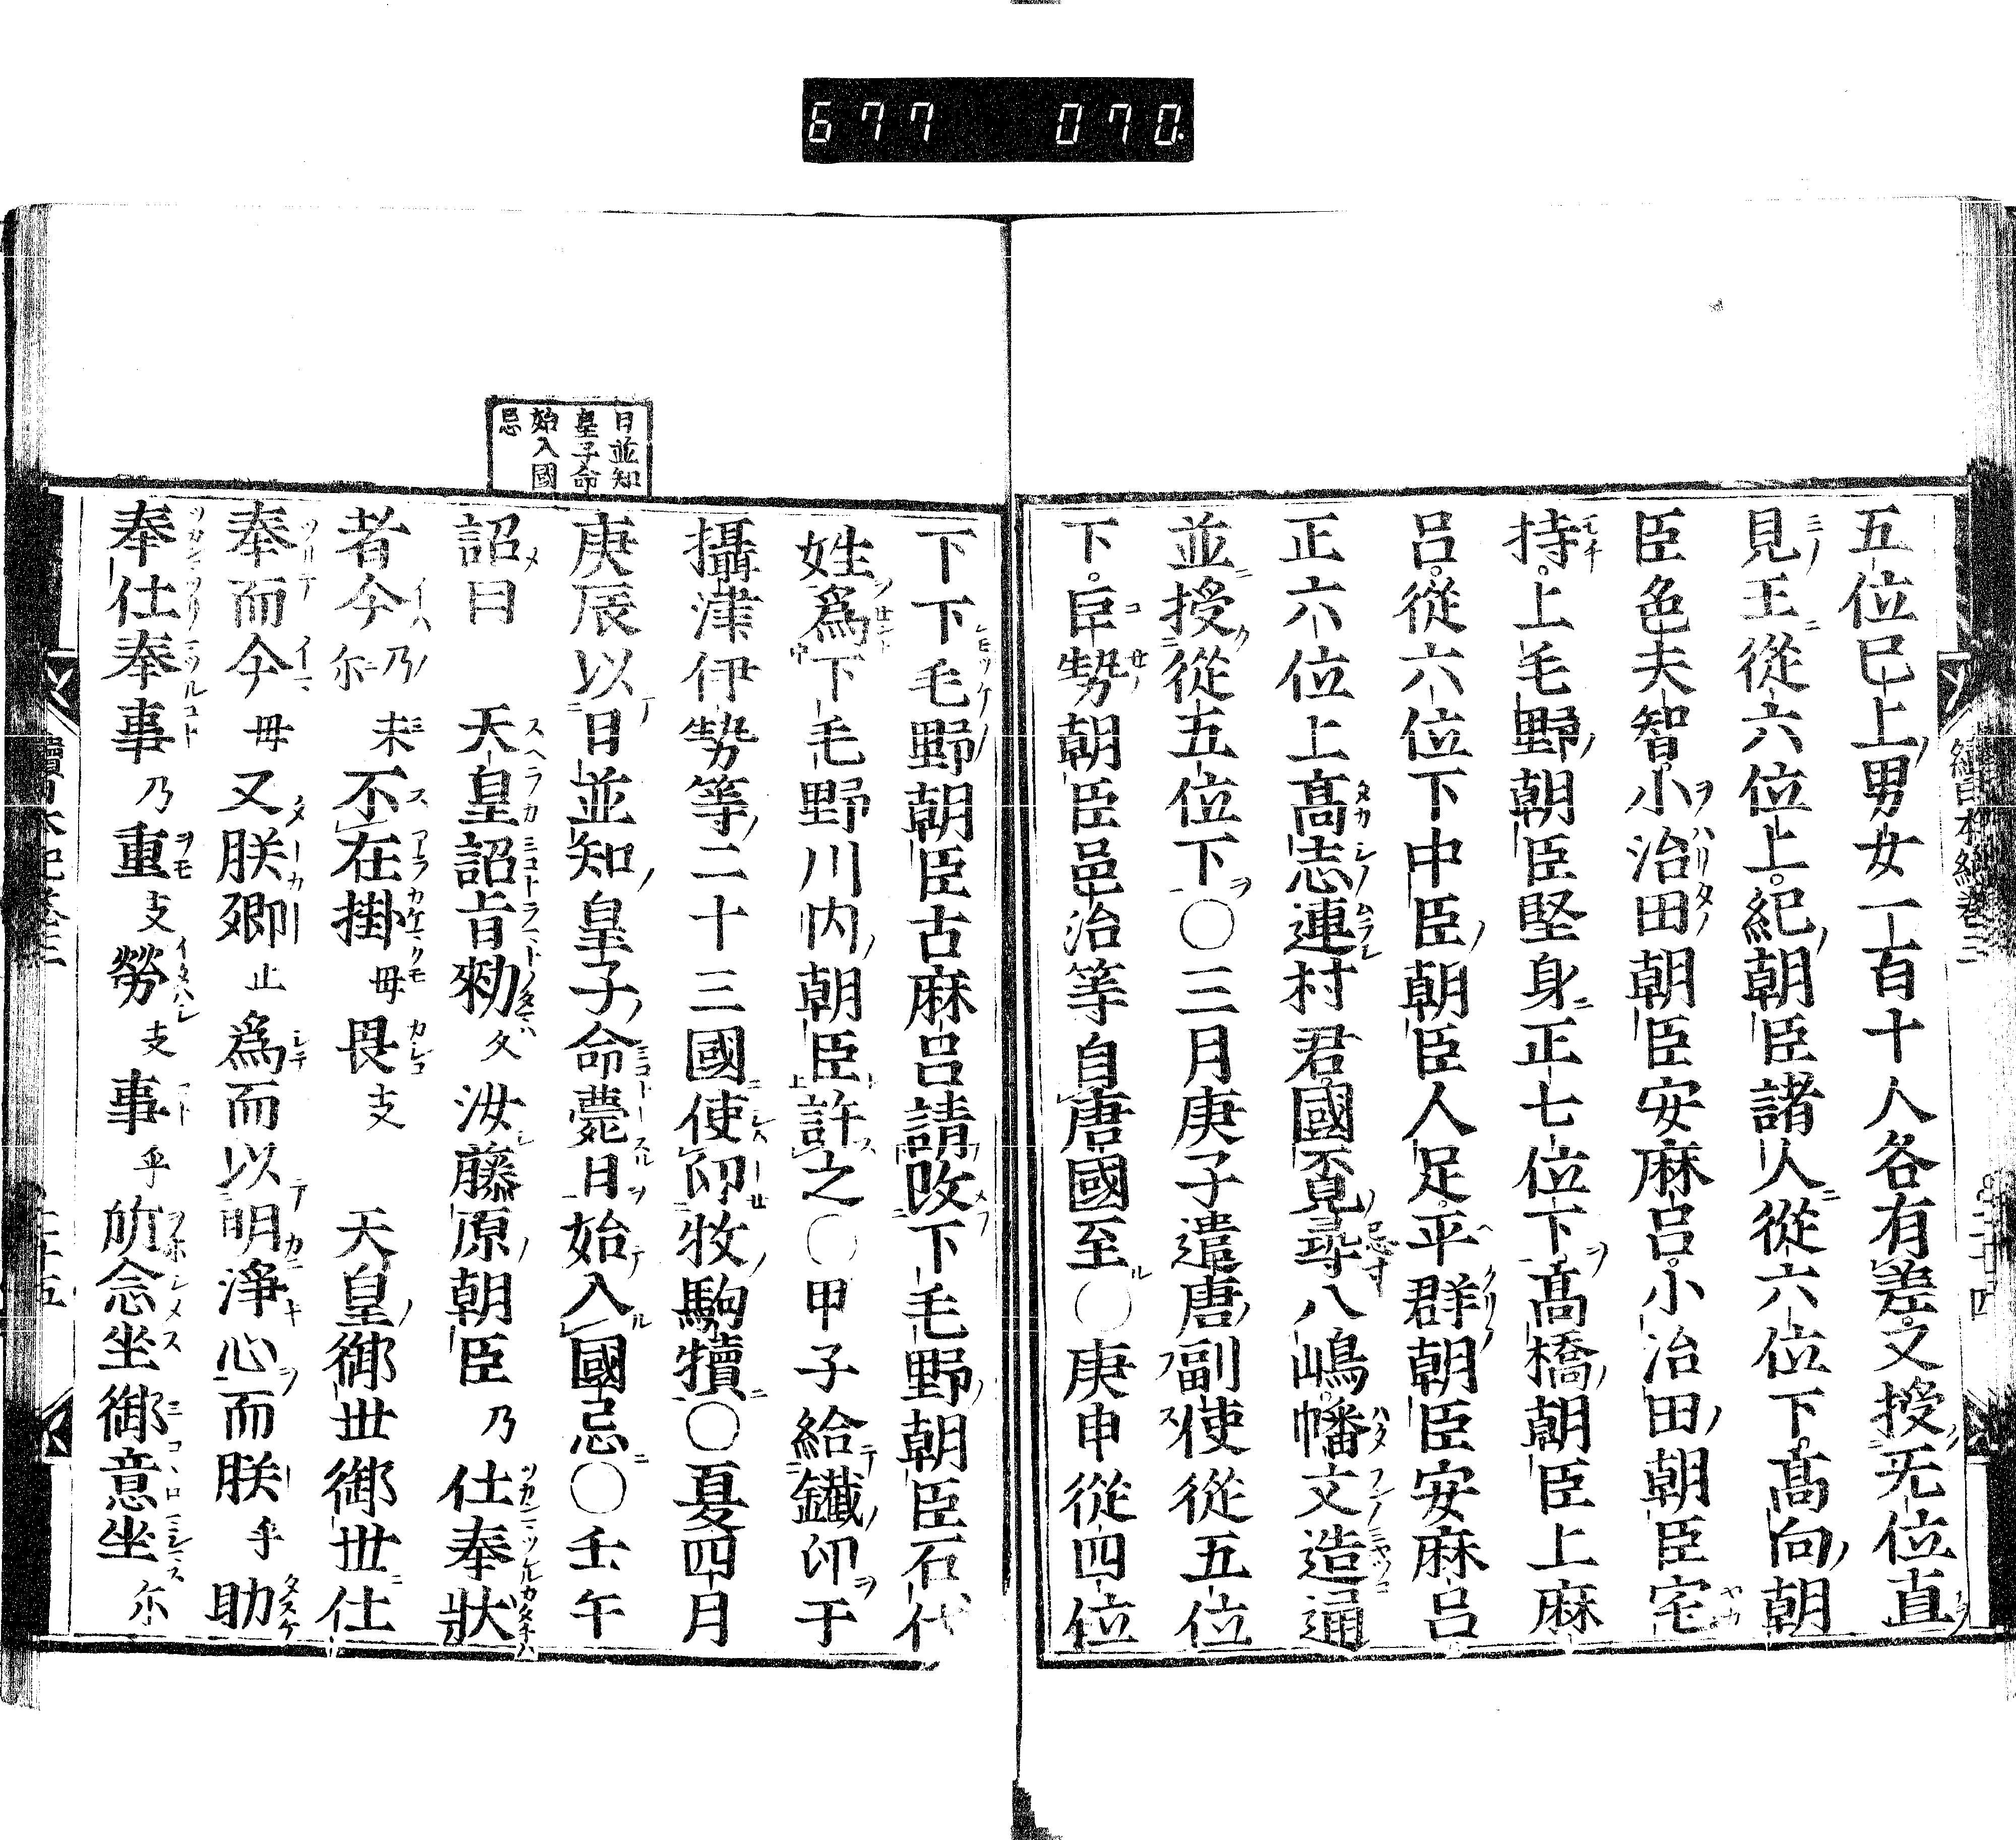 677 070
五位巳上男女一百十人各有差又授无位直
見王從六位上紀朝臣諸人從六位下髙向朝
臣色夫智小治田朝臣安麻呂小治田朝臣宅
持上毛野朝臣堅身正七位下髙橋朝臣上麻
呂從六位下中臣朝臣人足平群朝臣安麻呂
正六位上髙志連村君國覔尋八嶋幡文造通
並授從五位下〇三月庚子遣唐副使從五位
下臣勢朝臣邑治等自唐國至〇庚申從四位
下下毛野朝臣古麻呂請改下毛野朝臣石代
姓爲下毛野川内朝臣許之〇甲子給鐵印于
攝津伊勢等二十三國使印牧駒犢〇夏四月
日並知
皇子命
始入國
忌
庚辰以日並知皇子命薨日始入國忌〇壬午
詔曰 天皇詔旨勑久汝藤原朝臣乃仕奉狀
者今乃尓未不在掛毋畏支 天皇御世御世仕
奉而今毋又朕卿止爲而以明淨心而朕乎助
奉仕奉事乃重支勞支事乎所念坐御意坐尓